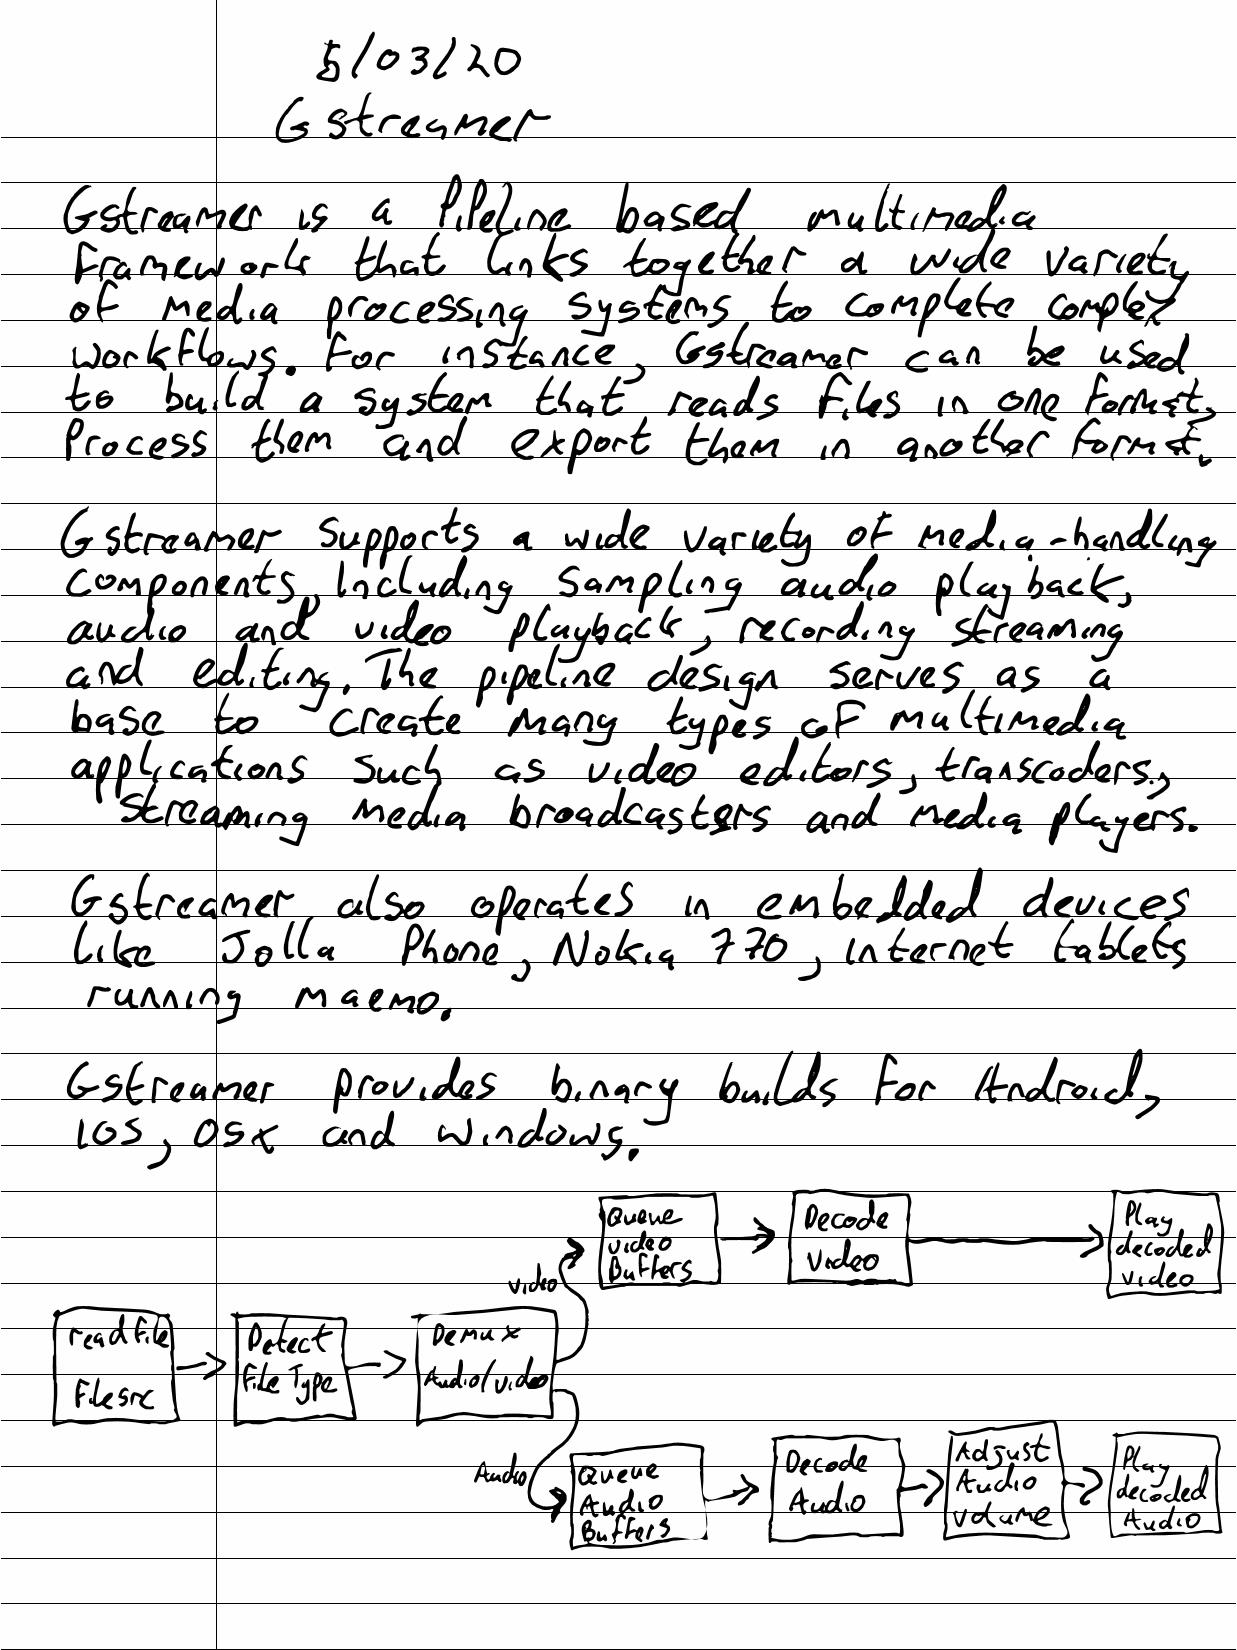 5/03/20
Gstreamer
Gstreamer is a Pipeline based multimedia
framework that links together a wide variety
of media processing systems to complete complex
workflows. For instance, Gstreamer can be used
to build a system that reads files in one format,
Process them and export them in another format.
Gstreamer supports a wide variety of media-handling
components, Including Sampling audio playback,
audio and video playback, recording streaming
and editing. The pipeline design serves as a
base to create many types of multimedia
applications such as video editors, transcoders,
Streaming media broadcasters and media players.
Gstreamer also operates in embedded devices
like Jolla Phone, Nokia 770, internet tablets
running maemo.
Gstreamer provides binary builds for Android,
IOS, OSX and windows.
Queue
video
Buffers
Decode
Video
Play
decoded
video
video
read file
filesrc
Detect
file Type
Demux
Audio/video
Audio
Queue
Audio
Buffers
Decode
Audio
Adjust
Audio
volume
Play
decoded
Audio